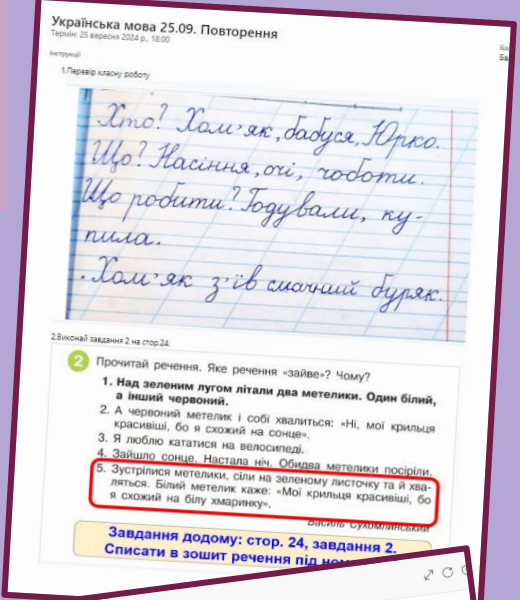 Українська мова 25.09. Повторення
Термін: 25 вересня 2024 р., 18:00
Інструкції
1.Перевір класну роботу
Хто? Хом'як, бабуся, Юрко.
Що? Насіння, очі, чоботи.
Що робити? Годували, ку-
пила.
Хом'як з'їв смачний буряк.
2.Виконай завдання 2 на стор.24.
2 Прочитай речення. Яке речення «зайве»? Чому?
1. Над зеленим лугом літали два метелики. Один білий,
а інший червоний.
2. А червоний метелик і собі хвалиться: «Ні, мої крильця
красивіші, бо я схожий на сонце».
3. Я люблю кататися на велосипеді.
4. Зайшло сонце. Настала ніч. Обидва метелики посіріли.
5. Зустрілися метелики, сіли на зеленому листочку та й хва-
ляться. Білий метелик каже: «Мої крильця красивіші, бо
я схожий на білу хмаринку».
Василь Сухомлинський
Завдання додому: стор. 24, завдання 2.
Списати в зошит речення під